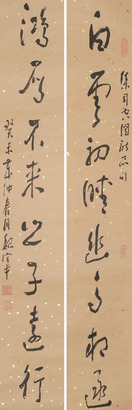 白雲初晴幽鳥相逐
集司空圖詩品句
鴻雁不來之子遠行
癸未歲仲春月